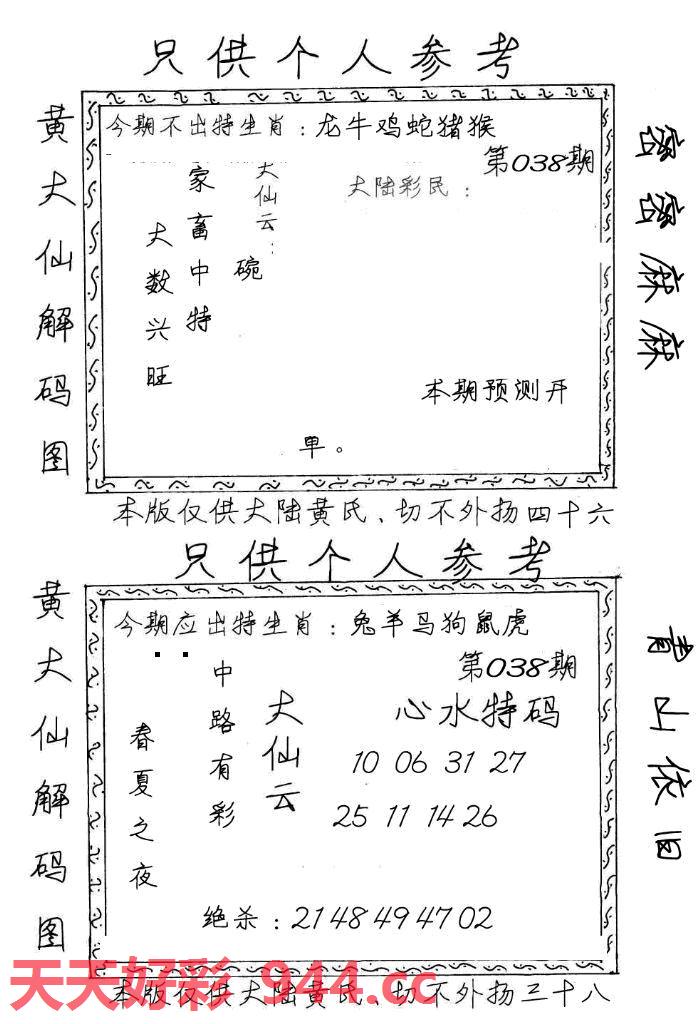 只供个人参考
黄大仙解码图
今期不出特生肖：龙牛鸡蛇猪猴
第038期
大陆彩民：
大仙云：
碗
家畜中特
大数兴旺
本期预测开
单。
密密麻麻
本版仅供大陆黄氏、切不外扬四十六
只供个人参考
黄大仙解码图
今期应出特生肖：兔羊马狗鼠虎
第038期
心水特码
10 06 31 27
25 11 14 26
大仙云
中路有彩
春夏之夜
绝杀：21 48 49 47 02
青山依旧
天天好彩 944.cc
本版仅供大陆黄氏、切不外扬三十八